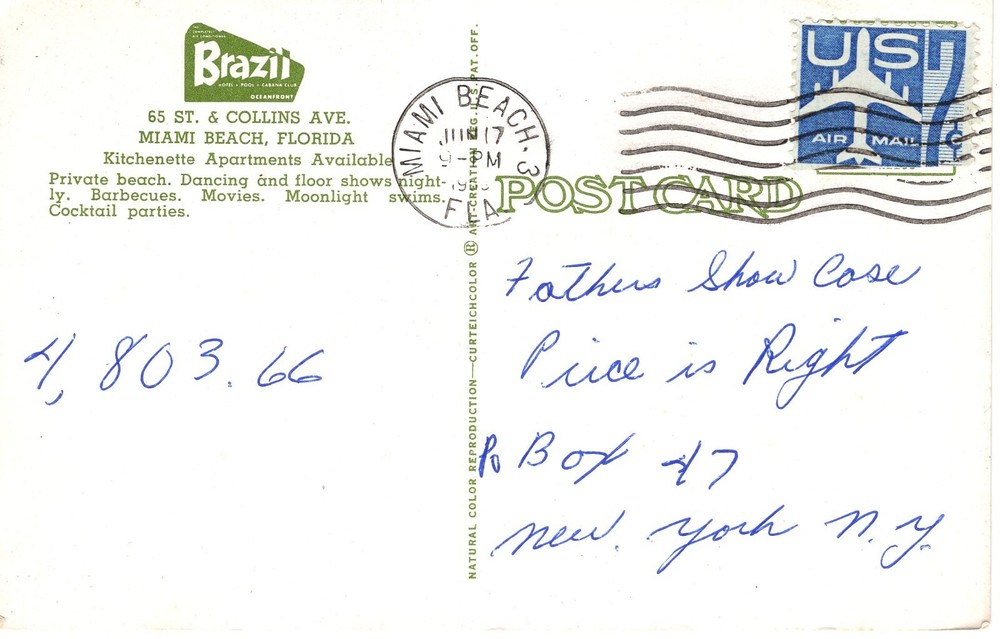 COMPLETELY
AIR CONDITIONED
Brazil
HOTEL • POOL • CABANA CLUB
OCEANFRONT
65 ST. & COLLINS AVE.
MIAMI BEACH, FLORIDA
Kitchenette Apartments Available
Private beach. Dancing and floor shows night-
ly. Barbecues. Movies. Moonlight swims.
Cocktail parties.
4,803.66
NATURAL COLOR REPRODUCTION—CURTEICHCOLOR ® ART-CREATION REG. U.S. PAT. OFF.
MIAMI BEACH, 3
JUN 17
PM
FLA
US 7¢
AIR MAIL
POST CARD
Fathers Show Case
Price is Right
Po Box 47
New York N.Y.